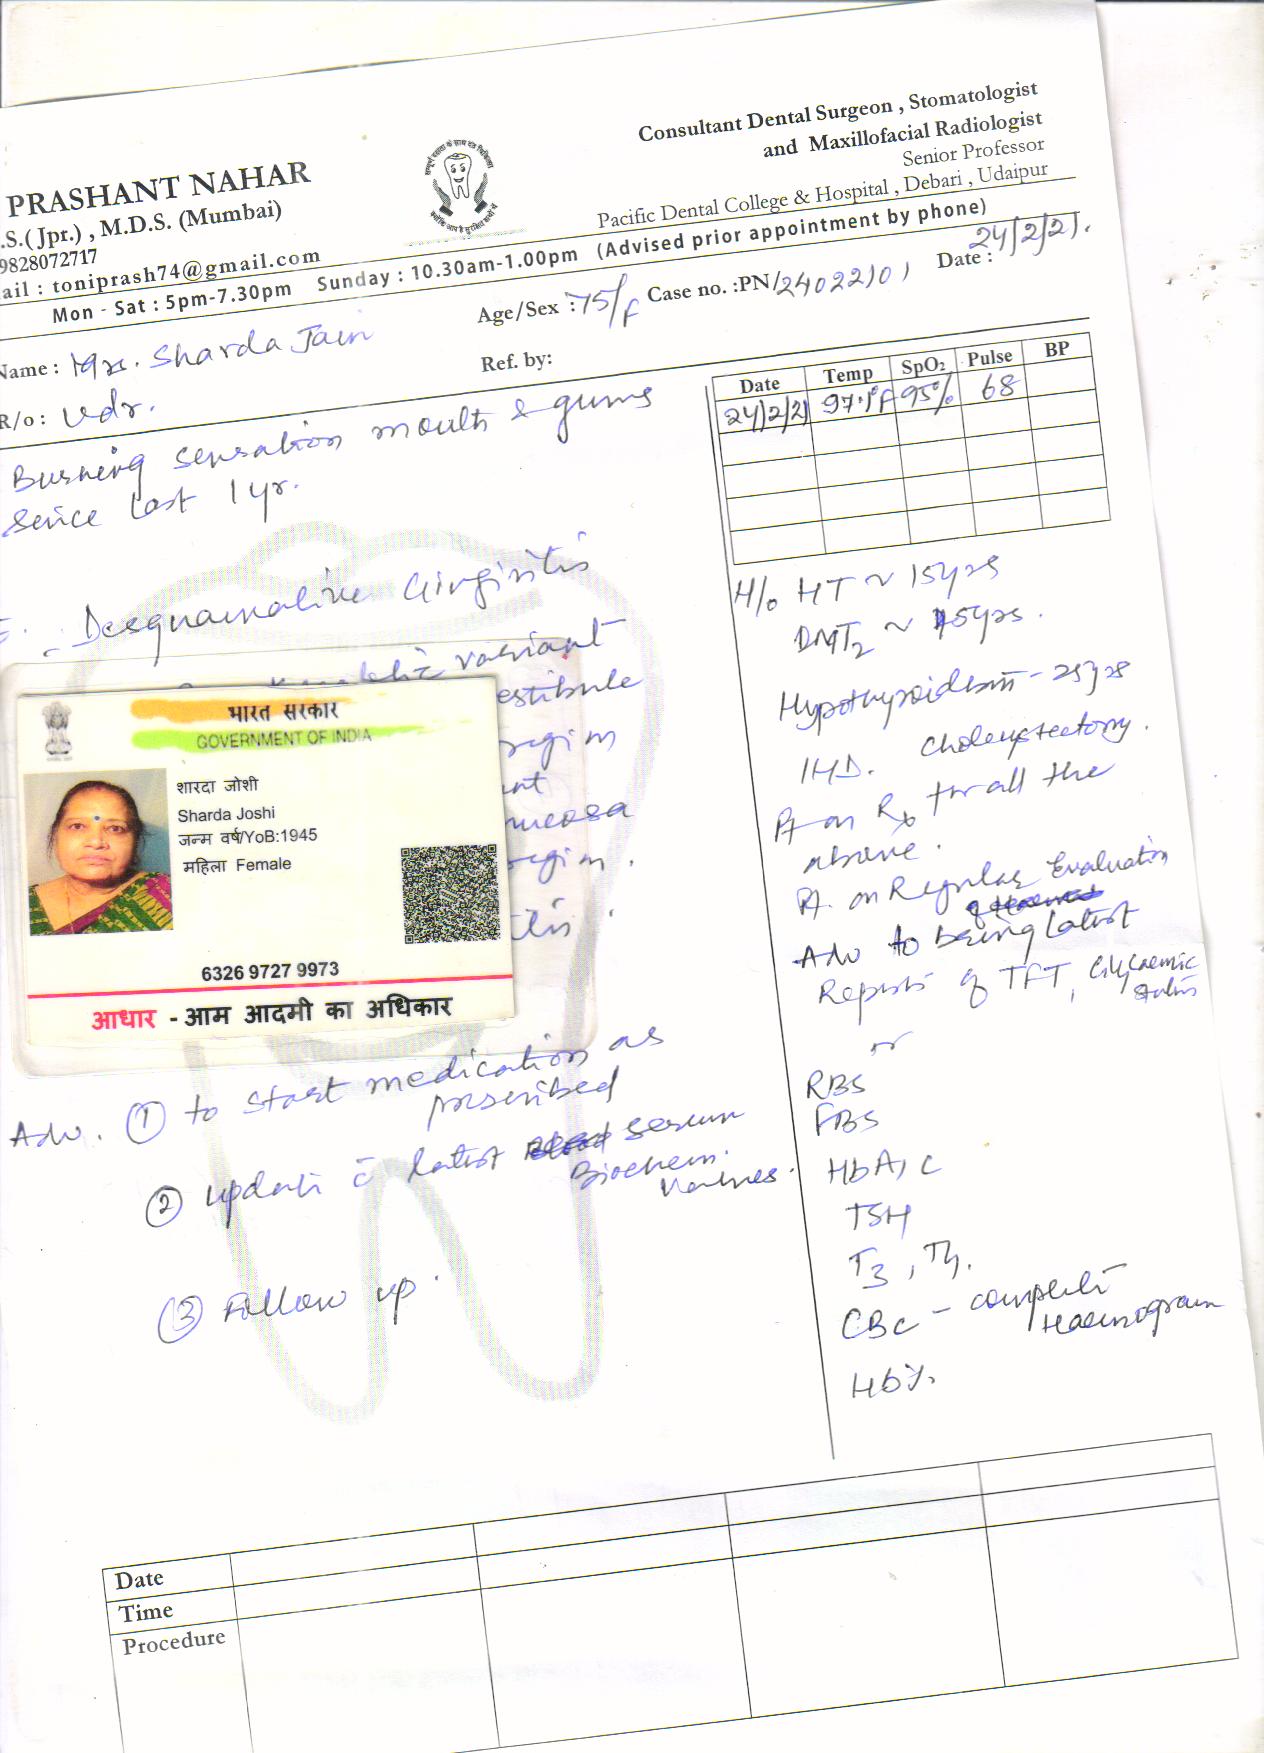 PRASHANT NAHAR
.S.(Jpr.) , M.D.S. (Mumbai)
9828072717
ail : toniprash74@gmail.com
Consultant Dental Surgeon , Stomatologist
and Maxillofacial Radiologist
Senior Professor
Pacific Dental College & Hospital , Debari , Udaipur
Mon - Sat : 5pm-7.30pm Sunday : 10.30am-1.00pm (Advised prior appointment by phone)
Name : Mrs. Sharda Jain
Age/Sex : 75/F
Case no. :PN/24022101
Date : 24/2/21.
R/o : Udr.
Ref. by:
Date Temp SpO₂ Pulse BP
24/2/21 97.1°F 95% 68
Burning sensation mouth & gums
Since last 1 yr.
Desquamative Gingivitis
variant
estibule
region
nt
mucosa
region.
tis.
भारत सरकार
GOVERNMENT OF INDIA
शारदा जोशी
Sharda Joshi
जन्म वर्ष/YoB:1945
महिला Female
6326 9727 9973
आधार - आम आदमी का अधिकार
Adv. ① to start medication as
prescribed
② update c̄ latest serum
Biochem.
③ Follow up.
H/o HT ~ 15yrs
DMT₂ ~ 15yrs.
Hypothyroidism - 25yrs
IHD. Cholecystectomy.
Pt on Rx for all the
above.
Pt. on Regular Evaluation
Adv to bring latest
Reports of TFT, Glycaemic
Status
or
RBS
FBS
HbA1C
TSH
T3, T4.
CBC - complete
Haemogram
Hb%.
Date
Time
Procedure